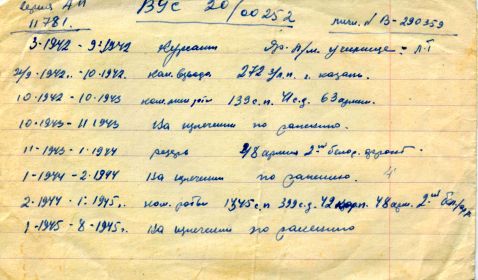 серия АП ВУС 20/00252
11781. личн. № В-290359
3-1942 - 9-1942 Курсант Яр. п/м. училище
9-1942г. - 10-1942. ком. взвода 272 з.п. г. казань.
10-1942 - 10-1943 ком. мин роты 139 с.п. 41 с.д. 63 армии.
10-1943 - 11 1943 На излечении по ранению.
11-1943 - 1-1944 резерв 48 армии 2ой белор.
1-1944 - 2-1944 На излечении по ранению. 4
2-1944 - 1-1945г. ком. роты 1345 с.п. 399 с.д. 42 корп. 48 арм. 2ой
1-1945 - 8-1945г. На излечении по ранению